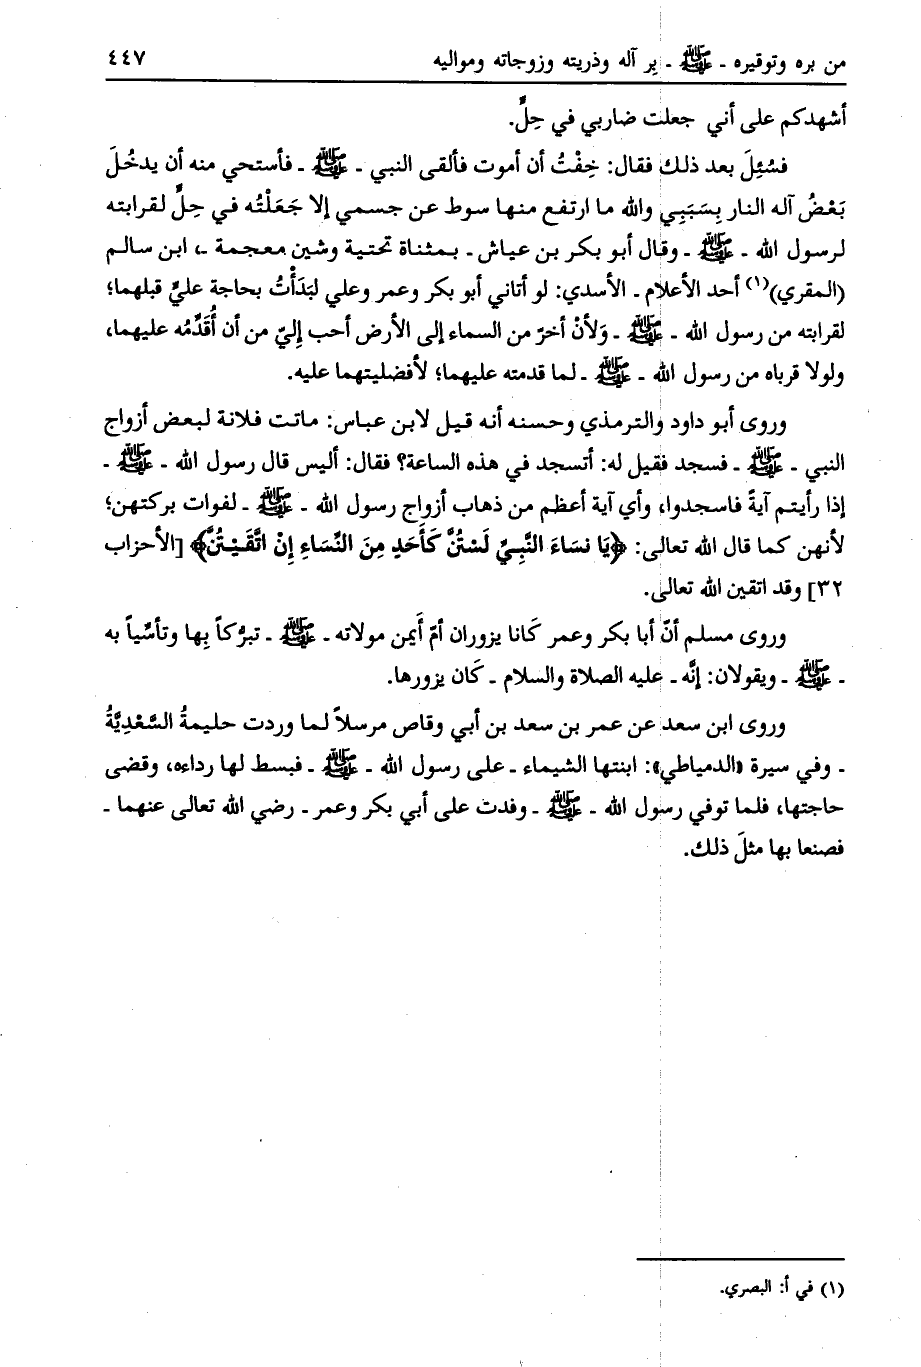 من بره وتوقيره - ﷺ - بِر آله وذريته وزوجاته ومواليه ٤٤٧
أشهدكم على أني جعلت ضاربي في حِلٍّ.
فسُئِلَ بعد ذلك فقال: خِفْتُ أن أموت فألقى النبي - ﷺ - فأستحي منه أن يدخُلَ
بَعْضُ آله النار بِسَبَبِي والله ما ارتفع منها سوط عن جسمي إلا جَعَلْتُه في حِلٍّ لقرابته
لرسول الله - ﷺ - وقال أبو بكر بن عياش - بمثناة تحتية وشين معجمة -، ابن سالم
(المقري)(١) أحد الأعلام - الأسدي: لو أتاني أبو بكر وعمر وعلي لبَدَأْتُ بحاجة عليٍّ قبلهما؛
لقرابته من رسول الله - ﷺ - وَلأنْ أخرّ من السماء إلى الأرض أحب إليّ من أن أُقَدِّمُه عليهما،
ولولا قرباه من رسول الله - ﷺ - لما قدمته عليهما؛ لأفضليتهما عليه.
وروى أبو داود والترمذي وحسنه أنه قيل لابن عباس: ماتت فلانة لبعض أزواج
النبي - ﷺ - فسجد فقيل له: أتسجد في هذه الساعة؟ فقال: أليس قال رسول الله - ﷺ -
إذا رأيتم آيةً فاسجدوا، وأي آية أعظم من ذهاب أزواج رسول الله - ﷺ - لفوات بركتهن؛
لأنهن كما قال الله تعالى: ﴿يَا نسَاءَ النَّبِيِّ لَسْتُنَّ كَأَحَدٍ مِنَ النِّسَاءِ إِنْ اتَّقَيْتُنَّ﴾ [الأحزاب
٣٢] وقد اتقين الله تعالى.
وروى مسلم أنّ أبا بكر وعمر كَانا يزوران أمّ أَيمن مولاته - ﷺ - تبرّكاً بِها وتأسِّياً به
- ﷺ - ويقولان: إنَّه - عليه الصلاة والسلام - كَان يزورها.
وروى ابن سعد عن عمر بن سعد بن أبي وقاص مرسلاً لما وردت حليمةُ السَّعْدِيَّةُ
- وفي سيرة «الدمياطي»: ابنتها الشيماء - على رسول الله - ﷺ - فبسط لها رداءه، وقضى
حاجتها، فلما توفي رسول الله - ﷺ - وفدت على أبي بكر وعمر - رضي الله تعالى عنهما -
فصنعا بها مثلَ ذلك.
(١) في أ: البصري.